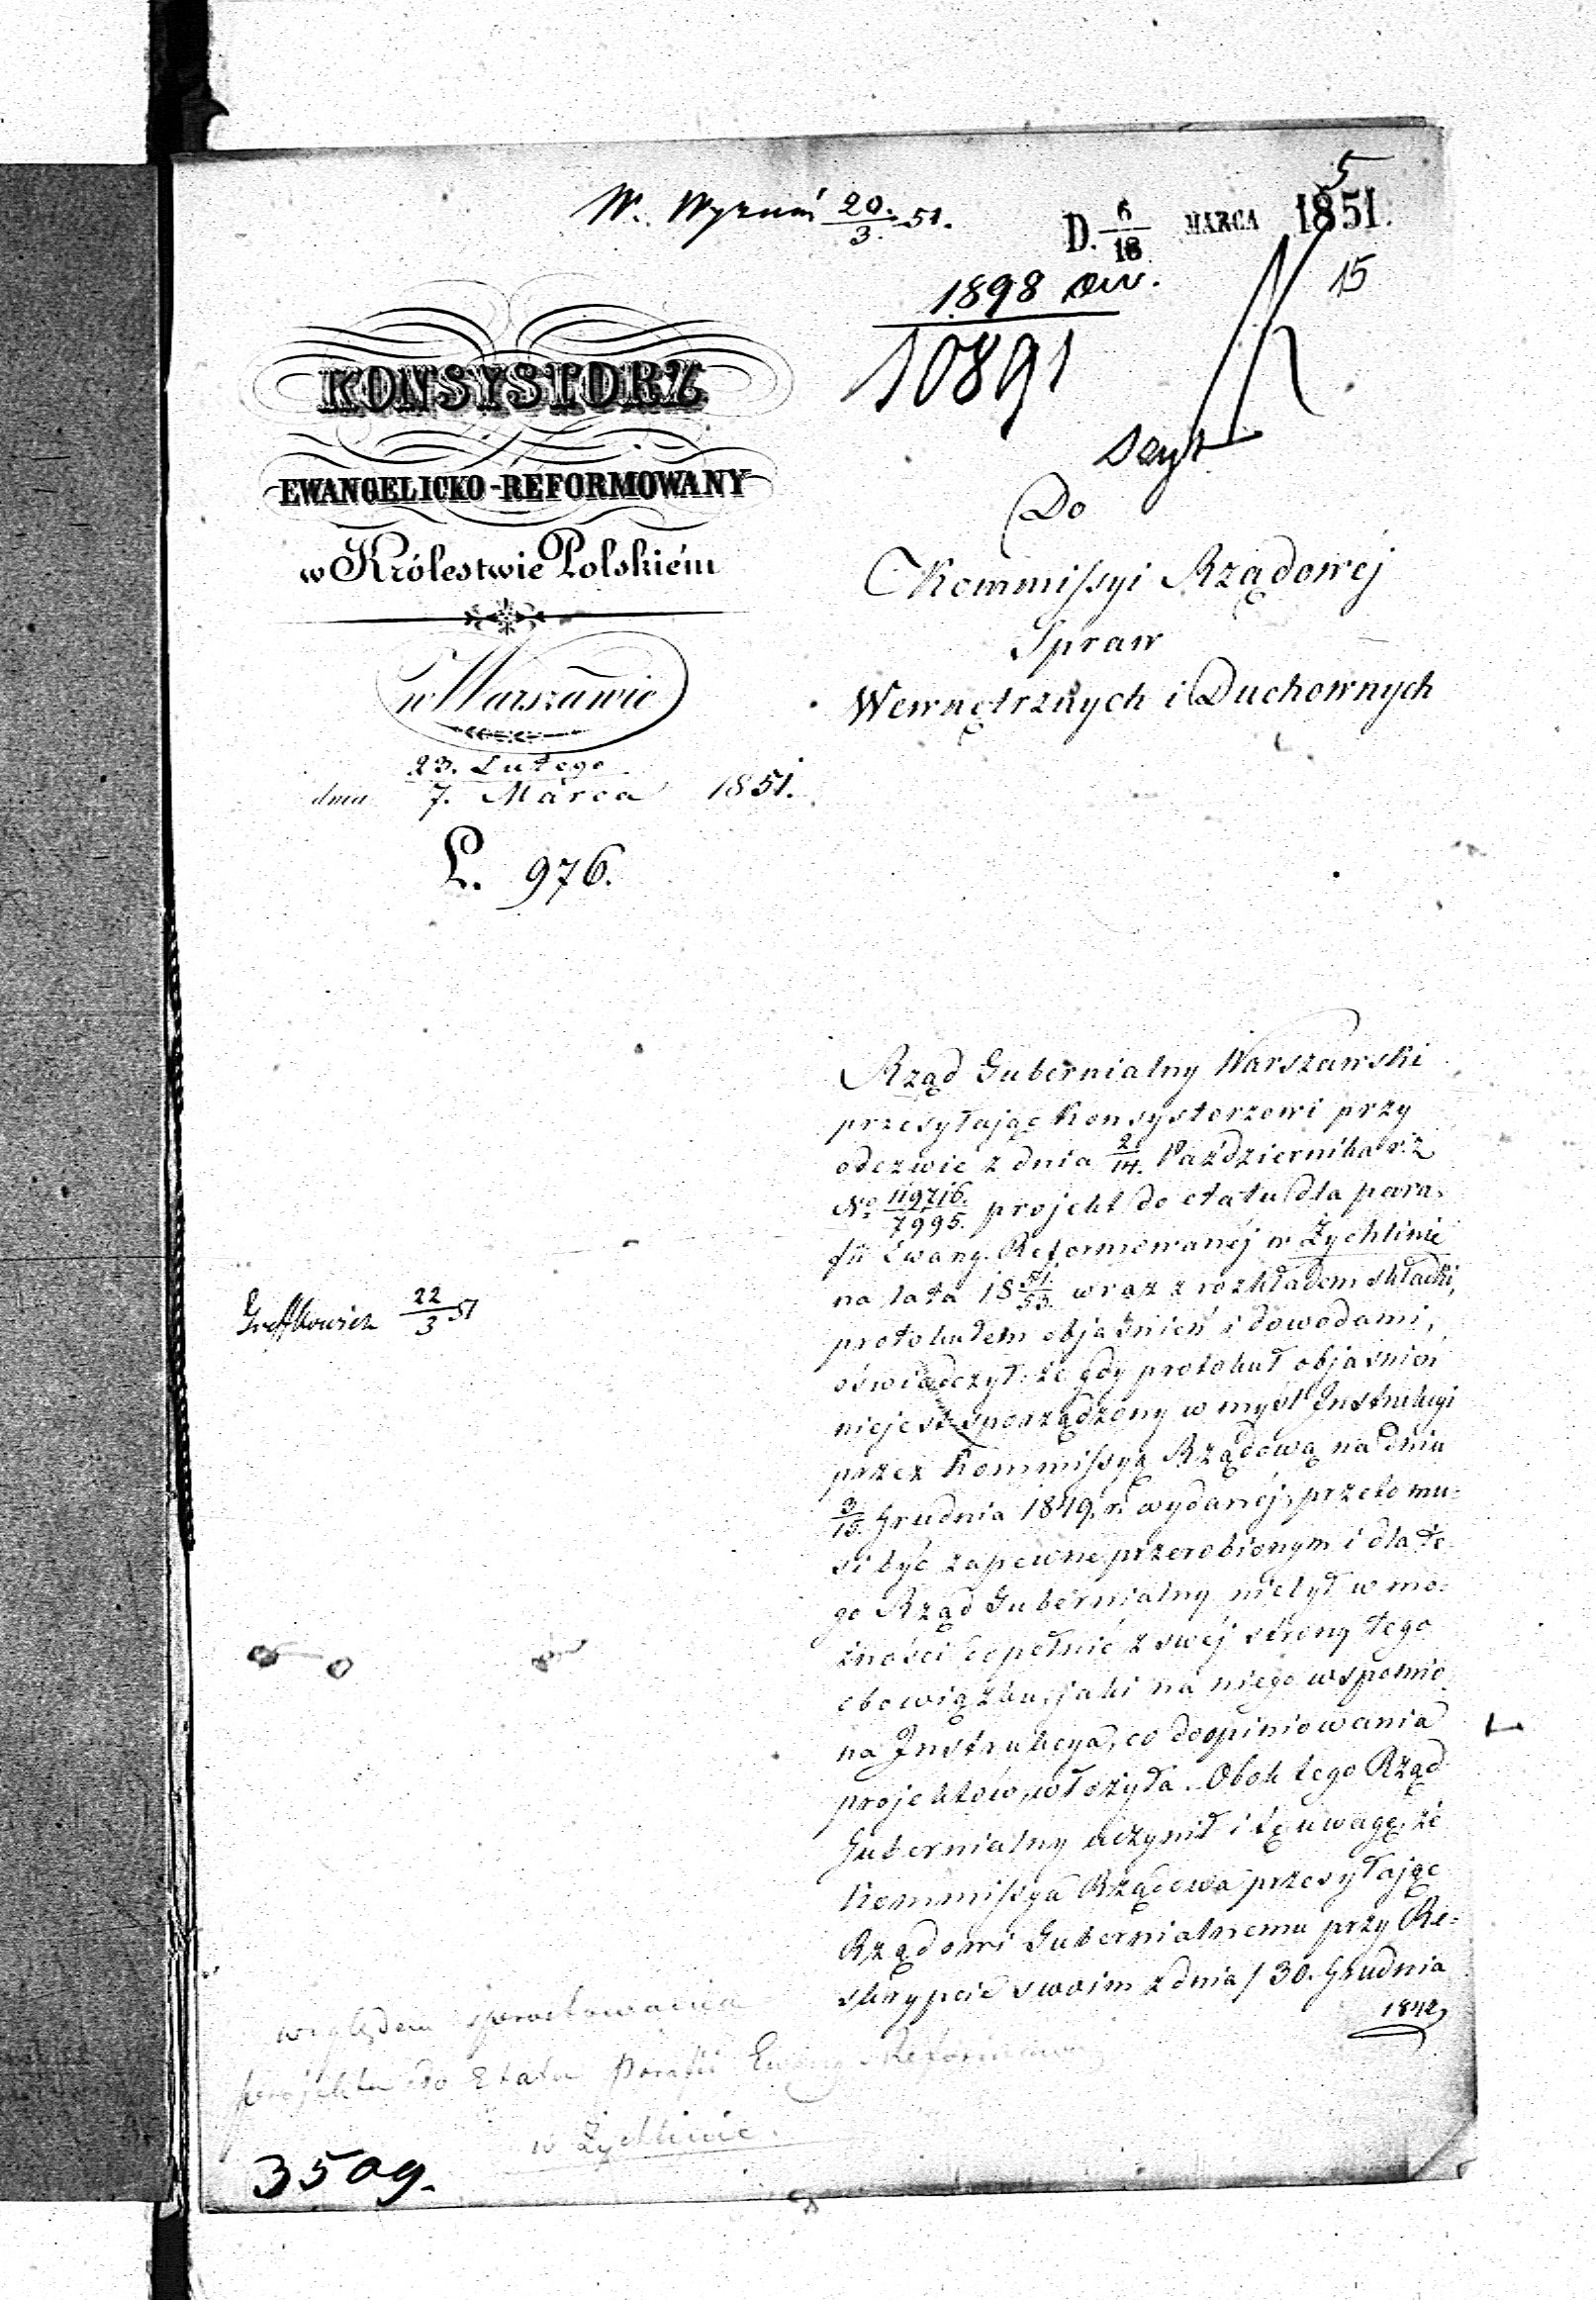 5
W. Wyrum 20./3. 51.
D. 6/18 MARCA 1851.
15
1898 aw.
10891
szyt
KONSYSTORZ
EWANGELICKO-REFORMOWANY
w Królestwie Polskiém
w Warszawie
23. Lutego
dnia 7. Marca 1851.
L. 976.
Do
Kommissyi Rządowéj
Spraw
Wewnętrznych i Duchownych
Rząd Gubernialny Warszawski
przesyłając Konsystorzowi przy
odezwie z dnia 2/14. Października r. z
No 119716./7995. projekt do etatu dla para-
fii Ewang. Reformowanéj w Żychlinie
na lata 18 51./53. wraz z rozkładem składki,
protokułem objaśnień i dowodami,
oświadczył: że gdy protokuł objaśnień
niejest sporządzony w myśl Instrukcyi
przez Kommissyą Rządową na dniu
3/15. Grudnia 1849. r. wydanéj, przeto mu-
si być zapewne przerobionym i dla te-
go Rząd Gubernialny niebył w mo-
żności dopełnić z swéj strony tego
obowiązku, jaki na niego wspomnio
na Instrukcya, co do opiniowania
projektów, włożyła. Obok tego Rząd
Gubernialny uczynił i tę uwagę, że
Kommissya Rządowa przesyłając
Rządowi Gubernialnemu przy Re-
skrypcie swoim z dnia / 30. Grudnia
1842
22/3 51
względem sprostowania
projektu do Etatu Parafii Ewang Reformowanej
w Żychlinie.
3509.